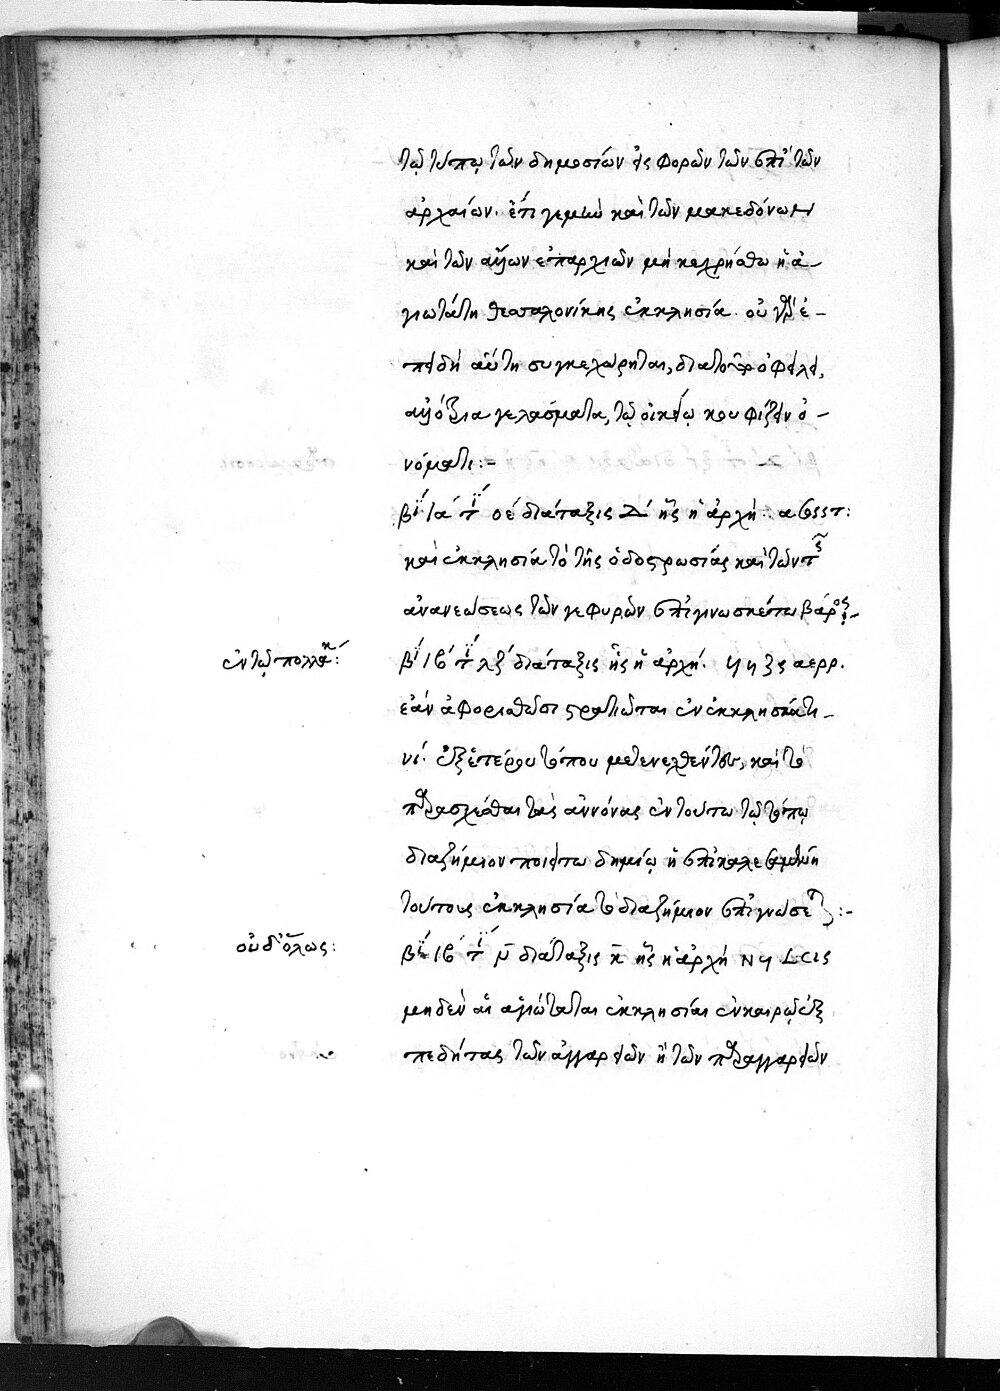 τῷ τύπῳ τῶν δημοσίων εἰσφορῶν τῶν ἐπὶ τῶν
ἀρχαίων. ἐπὶ γε μὴν καὶ τῶν μακεδόνων
καὶ τῶν ἄλλων ἐπαρχιῶν μὴ κεχρήσθω ἡ ἁ-
γιωτάτη θεσσαλονίκης ἐκκλησία. οὐ γὰρ ἐ-
πειδὴ αὕτη συγκεχώρηται, διὰ τοῦτο ὀφείλει,
γελάσματα, τῷ οἰκείῳ κουφίζειν ὀ-
νόματι:-
βι ια τι οε διάταξις Δ ἧς ἡ ἀρχὴ:
καὶ ἐκκλησία τὸ τῆς ὁδοστρωσίας καὶ τῶν τῆς
ἀνανεώσεως τῶν γεφυρῶν ἐπιγινωσκέτω βάρος-
ἐν τῷ πολλα:
βι ιβ τι λζ διάταξις ἧς ἡ ἀρχή.
ἐὰν ἀφορισθῶσι στρατιῶται ἐν ἐκκλησίᾳ τι-
νί. ἐξ ἑτέρου τόπου μετενεχθέντες, καὶ τὸ
παρασχέσθαι τὰς ἀννόνας ἐν τούτῳ τῷ τόπῳ
διαζήμιον ποιείτω δημίῳ ἡ ἐπικαλεσαμένη
τούτους ἐκκλησία τὸ διαζήμιον ἐπιγνώσεται:-
οὐδ' ὅλως:
βι ιβ τι ν διάταξις κ ἧς ἡ ἀρχή
μηδὲν αἱ ἁγιώταται ἐκκλησίαι ἐν καιρῷ ἐξ
πεδήτας τῶν ἀγγαρειῶν ἢ τῶν παραγγαρειῶν